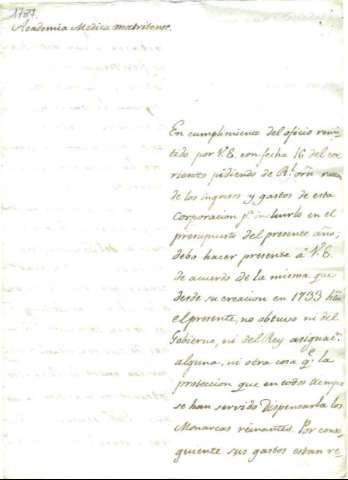 1787.
Academia Médica matritense.
En cumplimiento del oficio remi-
tido por V.E. con fecha 16 del cor-
riente pidiendo de Rl. orn razn
de los ingresos y gastos de esta
Corporacion pa incluirlo en el
presupuesto del presente año,
debo hacer presente á V.E.
de acuerdo de la misma que
desde su creacion en 1733 hta
el presente, no obtuvo ni del
Gobierno, ni del Rey asignacn.
alguna, ni otra cosa qe. la
proteccion que en todos tiempos
se han servido dispensarla los
Monarcas reinantes. Por conse-
guiente sus gastos estan re-